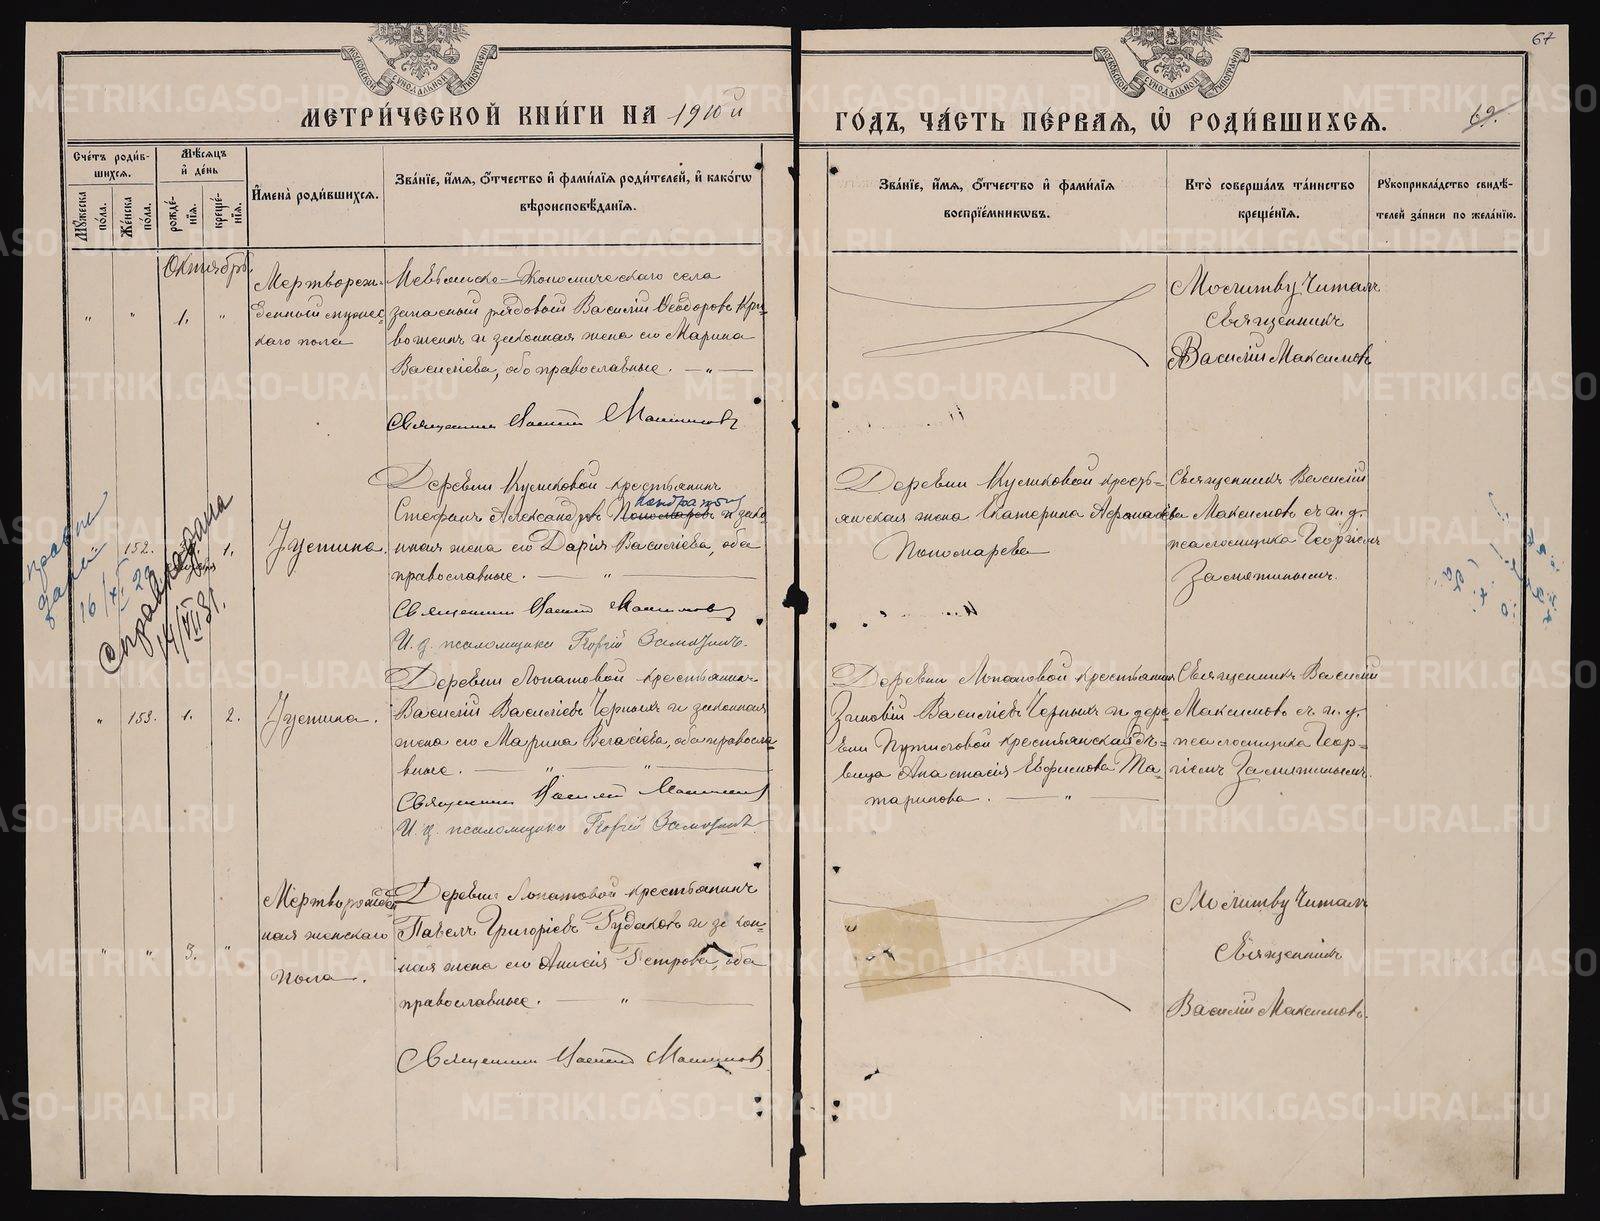 67
МЕТРИ́ЧЕСКОЙ КНИ́ГИ НА 1910й
ГО́ДЪ, ЧА́СТЬ ПЕ́РВАѦ, Ѿ РОДИ́ВШИХСѦ.
69.
Сче́тъ роди́в-
шихсѧ.
Мѣсѧцъ
и҆ де́нь
Мꙋ́жеска
по́ла.
Же́нска
по́ла.
рожде́-
нїѧ.
креще́-
нїѧ.
И҆мена̀ роди́вшихсѧ.
Зва́нїе, и҆́мѧ, ѻ҆́тчество и҆ фами́лїѧ роди́телей, и҆ како́гѡ
вѣроисповѣ́данїѧ.
Зва́нїе, и҆́мѧ, ѻ҆́тчество и҆ фами́лїѧ
воспрїе́мникѡвъ.
Кто̀ соверша́лъ та́инство
креще́нїѧ.
Рꙋкоприкла́дство свидѣ́-
телей за́писи по жела́нїю.
Октябрь.
" " 1. "
Мертворож-
денный мужес-
каго пола
запасный рядовой Василій Ѳеодоровъ Кри-
воженъ и законная жена его Марина
Василіева, обо православные. — " —
Священникъ Василій Максимовъ
Молитву читалъ
Священникъ
Василій Максимовъ
152. 1.
Іустина.
Деревни Куликовой крестьянинъ
Кондратов
Стефанъ Александровъ Пономаревъ и зако-
нная жена его Дарія Василіева, оба
православные. — " —
Священникъ Василій Максимовъ
И. д. псаломщика Георгій Замятинъ.
Деревни Куликовой кресть-
янская жена Екатерина Афанасьева
Пономарева
Священникъ Василій
Максимовъ съ и. д.
псаломщика Георгіемъ
Замятинымъ.
Справка дана
14/VII 31.
16/XI 22
" 153. 1. 2.
Іустина.
Деревни Лопатовой крестьянинъ
Василій Василіевъ Черныхъ и законная
жена его Марина Власіева, оба правосла-
вные. — " — " —
Священникъ Василій Максимовъ
И. д. псаломщика Георгій Замятинъ
Деревни Лопатовой крестьянинъ
Зиновій Василіевъ Черныхъ и дере-
вни Путиловой крестьянская дѣ-
вица Анастасія Евфимова Та-
таринова. — " —
Священникъ Василій
Максимовъ съ и. д.
псаломщика Геор-
гіемъ Замятинымъ.
" " 3. "
Мертворожден-
ная женскаго
пола.
Деревни Лопатовой крестьянинъ
Павелъ Григоріевъ Гудаковъ и закон-
ная жена его Анисія Петрова, оба
православные. — " —
Священникъ Василій Максимовъ
Молитву читалъ
Священникъ
Василій Максимовъ.
METRIKI.GASO-URAL.RU